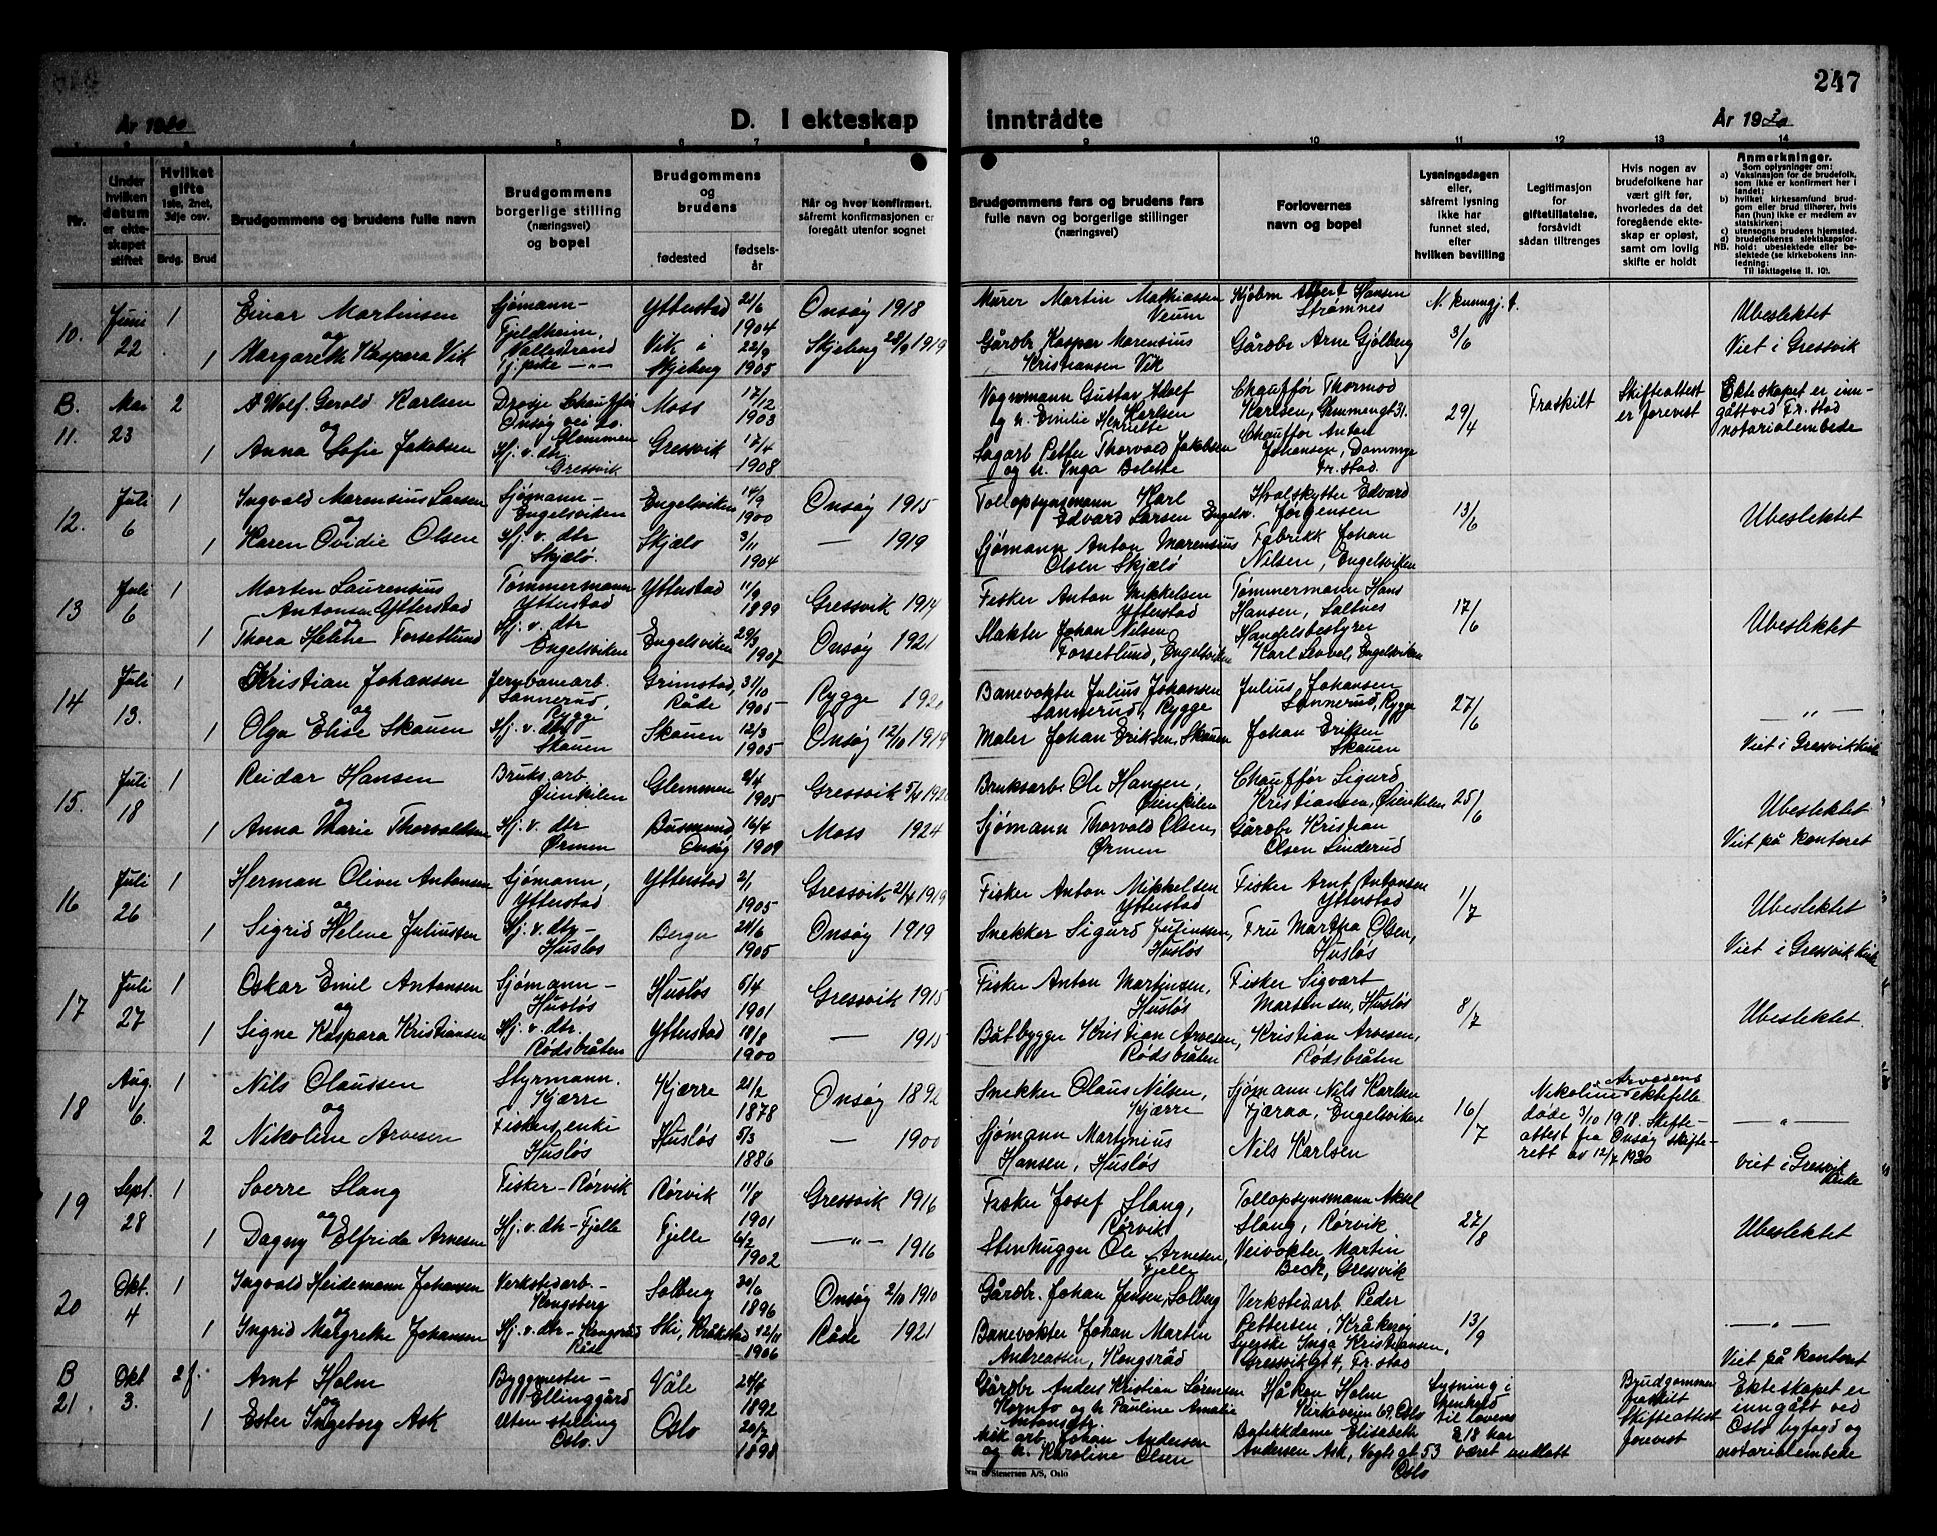 247
År 1930
D. I ekteskap inntrådte
År 1930
1 2 3 4 5 6 7 8 9 10 11 12 13 14
Nr.
Under hvilken datum er ekteskapet stiftet
Hvilket gifte 1ste, 2net, 3dje osv.
Brdg. Brud
Brudgommens og brudens fulle navn
Brudgommens borgerlige stilling (næringsvei) og bopel
Brudgommens og brudens
fødested
fødselsår
Når og hvor konfirmert, såfremt konfirmasjonen er foregått utenfor sognet
Brudgommens fars og brudens fars fulle navn og borgerlige stillinger (næringsvei)
Forlovernes navn og bopel
Lysningsdagen eller, såfremt lysning ikke har funnet sted, efter hvilken bevilling
Legitimasjon for giftetillatelse, forsåvidt sådan tiltrenges
Hvis nogen av brudefolkene har vært gift før, hvorledes da det foregående ekteskap er opløst, samt om lovlig skifte er holdt
Anmerkninger.
Som oplysninger om:
a) Vaksinasjon for de brudefolk, som ikke er konfirmert her i landet;
b) hvilket kirkesamfund brudgom eller brud tilhører, hvis han (hun) ikke er medlem av statskirken;
c) utensogns brudens hjemsted.
d) brudefolkenes slektskapsforhold: ubeslektede eller beslektede (se kirkebokens innledning:
NB. Til iakttagelse II. 10).
10. Juni 22 1 Einar Martinsen Sjømann - Fjeldheim, Ytterstad 21/6 1904 Onsøy 1918 Murer Martin Mathiassen Veum Albert Hansen Strømnes N. kunngj. f. 3/6 Ubeslektet
og
1 Margarethe Kaspara Vik Vallestrand Vik i Skjeberg 22/9 1905 Skjeberg 28/9 1919 Gårdbr Kasper Marensius Kristiansen Vik Gårdbr Arne Gjølberg Viet i Gressvik
B. 11. Mai 23 2 Gerold Karlsen Drosje Chauffør Onsøy vei Glemmen Moss 17/12 1903 Vognmann Gustav Adolf Karlsen og h. Emilie Henriette Chauffør Thormod Karlsen, Glemmengt 31. 29/4 Fraskilt Skifteattest er forevist Ekteskapet er inngått ved Fr.stad notarialembede
og
1 Anna Sofie Jakobsen Hj. v. dtr. Gressvik Gressvik 17/4 1908 Sagarb Petter Thorvald Jakobsen og h. Inga Bolette Chauffør Anton Johansen, Dammyr Fr.stad
12. Juli 6 1 Ingvald Marensius Larsen Sjømann - Engelsviken Engelsviken 14/9 1900 Onsøy 1915 Tollopsynsmann Karl Edvard Larsen Engelsv. Hvalskytter Edvard Jørgensen 13/6 Ubeslektet
og
1 Karen Ovidie Olsen Hj. v. dtr Skjælø. Skjælø 3/11 1904 — 1919 Sjømann Anton Marensius Olsen Skjælø Fabrikk Johan Nilsen, Engelsviken
13 Juli 6 1 Morten Laurensius Antonsen Ytterstad Tømmermann Ytterstad Ytterstad 11/9 1899 Gressvik 1914 Fisker Anton Mikkelsen Ytterstad Tømmermann Hans Hansen, Saltnes 17/6 Ubeslektet
og
1 Thora Helene Forsetlund Hj. v. dtr Engelsviken Engelsviken 29/3 1907 Onsøy 1921 Slakter Johan Nilsen Forsetlund, Engelsviken Handelsbestyrer Karl Engelsviken
14 Juli 13. 1 Kristian Johansen Jernbanearb. Sannerud, Rygge Grimstad, Råde 31/10 1905 Rygge 1920 Banevokter Julius Johansen Sannerud, Rygge Julius Johansen Sannerud, Rygge 27/6 — " —
og
1 Olga Elise Skauen Hj. v. dtr Skauen Skauen 12/3 1905 Onsøy 12/10 1919 Maler Johan Eriksen, Skauen Johan Eriksen Skauen Viet i Gressvik kirke
15. Juli 18 1 Reidar Hansen Bruks.arb. Øienkilen Glemmen 2/4 1905 Gressvik 5/4 1920 Bruksarb. Ole Hansen, Øienkilen Chauffør Sigurd Kristiansen, Øienkilen 25/6 Ubeslektet
og
1 Anna Marie Thorvaldsen Hj. v. dtr Ørmen Onsøy 16/4 1909 Moss 1924 Sjømann Thorvald Olsen, Ørmen Gårdbr Kristian Olsen Linderud Viet på kontoret
16 Juli 26 1 Herman Oliver Antonsen Sjømann, Ytterstad Ytterstad 2/1 1905 Gressvik 21/4 1919 Fisker Anton Mikkelsen Ytterstad Fisker Arnt Antonsen Ytterstad 1/7 Ubeslektet
og
1 Sigrid Helene Juliussen Hj. v. dtr - Husløs Berger 24/6 1905 Onsøy 1919 Snekker Sigurd Juliussen, Husløs Fru Martha Olsen, Husløs Viet i Gressvik kirke
17 Juli 27 1 Oskar Emil Antonsen Sjømann - Husløs Husløs 5/4 1901 Gressvik 1915 Fisker Anton Martinsen, Husløs Fisker Sigvart Martinsen, Husløs 8/7 Ubeslektet.
og
1 Signe Kaspara Kristiansen Hj. v. dtr. Rødsbråten Ytterstad 18/8 1900 — 1915 Båtbygger Kristian Arvesen, Rødsbråten Kristian Arvesen, Rødsbråten
18 Aug. 6. 1 Nils Claussen Styrmann. Kjærre Kjærre 21/2 1878 Onsøy 1892 Snekker Claus Nilsen, Kjærre Sjømann Nils Karlsen Fjæraa, Engelsviken 16/7 Nikoline Arvesens ektefelle døde 3/10 1918. Skifteattest fra Onsøy skifterett av 12/7 1930 — " —
og
2 Nikoline Arvesen Fiskers enke Husløs Husløs 5/3 1886 — 1900 Sjømann Martinius Hansen, Husløs Nils Karlsen Viet i Gressvik kirke
19 Sept. 28 1 Sverre Slang Fisker - Rørvik Rørvik 11/8 1901 Gressvik 1916 Fisker Josef Slang, Rørvik Tollopsynsmann Aksel Slang, Rørvik 27/8 Ubeslektet
og
1 Dagny Elfrida Arnesen Hj. v. dtr - Fjelle Fjelle 6/2 1902 — " — 1916 Stenhugger Ole Arnesen, Fjelle Veivokter Martin Beck, Gressvik
20 Okt. 4 1 Ingvald Heidemann Johansen Verkstedarb. - Kongsberg Solberg 20/6 1896 Onsøy 2/10 1910 Gårdbr. Johan Jensen, Solberg Verkstedarb Peder Pettersen, Kråkerøy 13/9 — " —
og
1 Ingrid Margrethe Johansen Hj. v. dtr - Kongsrød Råde Ski, Kråkstad 12/11 1906 Råde 1921 Banevokter Johan Martin Andreassen, Kongsrød Syerske Inga Kristiansen, Gressvikgt 4, Fr.stad Viet på kontoret
B 21. Okt 3. 2 f. Arnt Holm Byggmester - Ellinggård Våle 24/4 1892 Gårdbr Anders Kristian Sørensen og h. Pauline Amalie Antonsdtr. Håkon Holm Kirkeveien 69, Oslo Lysning i henhold til lovens § 18 har været undlatt Brudgommen fraskilt Skifteattest forevist Ekteskapet er inngått ved Oslo byfogd og notarialembede
og
1 Ester Ingeborg Ask Uten stilling Oslo. Oslo 20/7 1898 arb. Johan Andersen og h. Karoline Olsen Butikkdame Elisabeth Andersen Ask, Vogts gt 53 Oslo
Sem & Stenersen A/S, Oslo